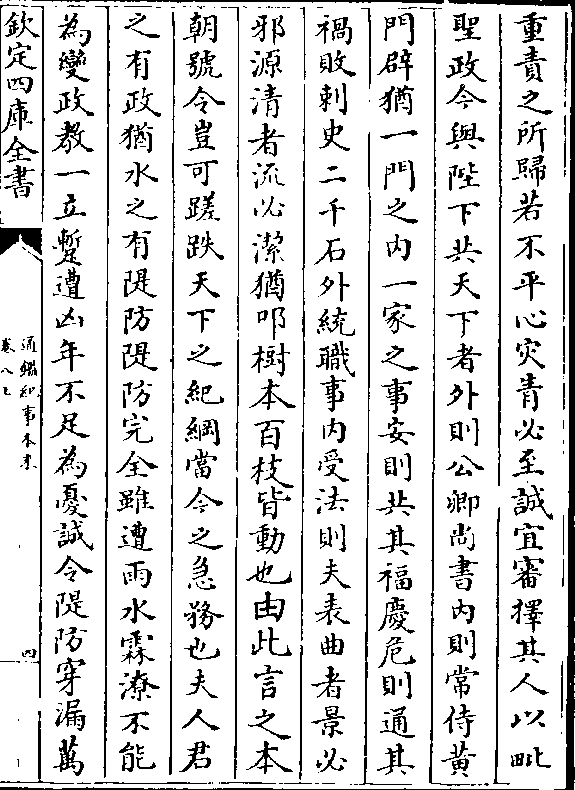 重責之所歸若不平心災眚必至誠宜審擇其人以毗
聖政今與陛下共天下者外則公卿尚書內則常侍黃
門辟猶一門之內一家之事安則共其福慶危則通其
禍敗刺史二千石外統職事內受法則夫表曲者景必
邪源清者流必潔猶叩樹本百枝皆動也由此言之本
朝號令豈可蹉跌天下之紀綱當今之急務也夫人君
之有政猶水之有隄防隄防完全雖遭雨水霖潦不能
為變政教一立蹔遭凶年不足為憂誠令隄防穿漏萬
欽定四庫全書
通鑑紀事本末
卷八上
四